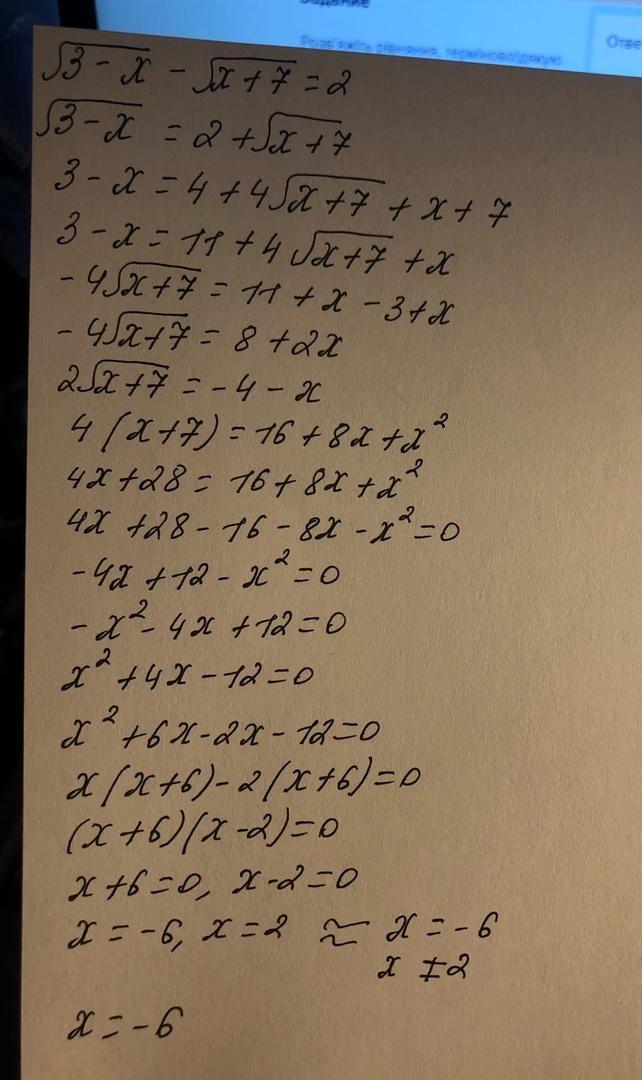 Задание
Розв'яжіть рівняння, терміново!дякую
Отве
√3 - x - √x + 7 = 2
√3 - x = 2 + √x + 7
3 - x = 4 + 4√x + 7 + x + 7
3 - x = 11 + 4√x + 7 + x
- 4√x + 7 = 11 + x - 3 + x
- 4√x + 7 = 8 + 2x
2√x + 7 = - 4 - x
4 (x + 7) = 16 + 8x + x²
4x + 28 = 16 + 8x + x²
4x + 28 - 16 - 8x - x² = 0
- 4x + 12 - x² = 0
- x² - 4x + 12 = 0
x² + 4x - 12 = 0
x² + 6x - 2x - 12 = 0
x (x + 6) - 2 (x + 6) = 0
(x + 6)(x - 2) = 0
x + 6 = 0, x - 2 = 0
x = -6, x = 2 ≈ x = -6
x ≠ 2
x = -6